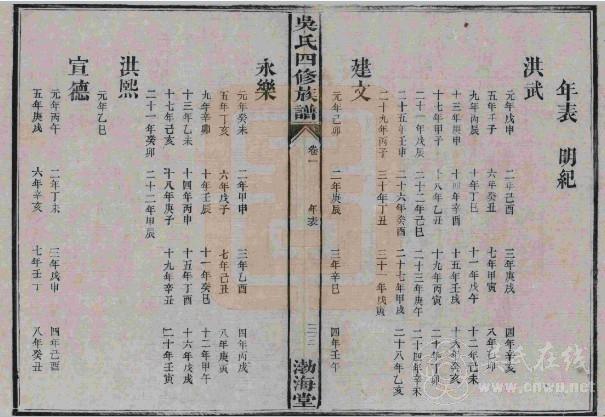 年表 明紀
洪武
元年戊申 二年己酉 三年庚戌 四年辛亥
五年壬子 六年癸丑 七年甲寅 八年乙卯
九年丙辰 十年丁巳 十一年戊午 十二年己未
十三年庚申 十四年辛酉 十五年壬戌 十六年癸亥
十七年甲子 十八年乙丑 十九年丙寅 二十年丁卯
二十一年戊辰 二十二年己巳 二十三年庚午 二十四年辛未
二十五年壬申 二十六年癸酉 二十七年甲戌 二十八年乙亥
二十九年丙子 三十年丁丑 三十一年戊寅
建文
元年己卯 二年庚辰 三年辛巳 四年壬午
吳氏四修族譜 卷一 年表 渤海堂
永樂
元年癸未 二年甲申 三年乙酉 四年丙戌
五年丁亥 六年戊子 七年己丑 八年庚寅
九年辛卯 十年壬辰 十一年癸巳 十二年甲午
十三年乙未 十四年丙申 十五年丁酉 十六年戊戌
十七年己亥 十八年庚子 十九年辛丑 二十年壬寅
二十一年癸卯 二十二年甲辰
洪熙
元年乙巳
宣德
元年丙午 二年丁未 三年戊申 四年己酉
五年庚戌 六年辛亥 七年壬子 八年癸丑
吴氏在线
www.cnwu.net